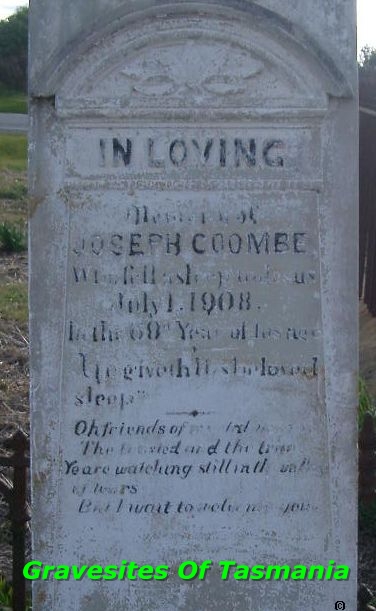 IN LOVING
Memory of
JOSEPH COOMBE
Who fell asleep in Jesus
July 1. 1908.
In the 69th Year of his age
"He giveth His beloved
sleep"
Oh friends of mortal years
The trusted and the true
Ye are watching still in the valley
of tears
But I wait to welcome you
Gravesites Of Tasmania
©